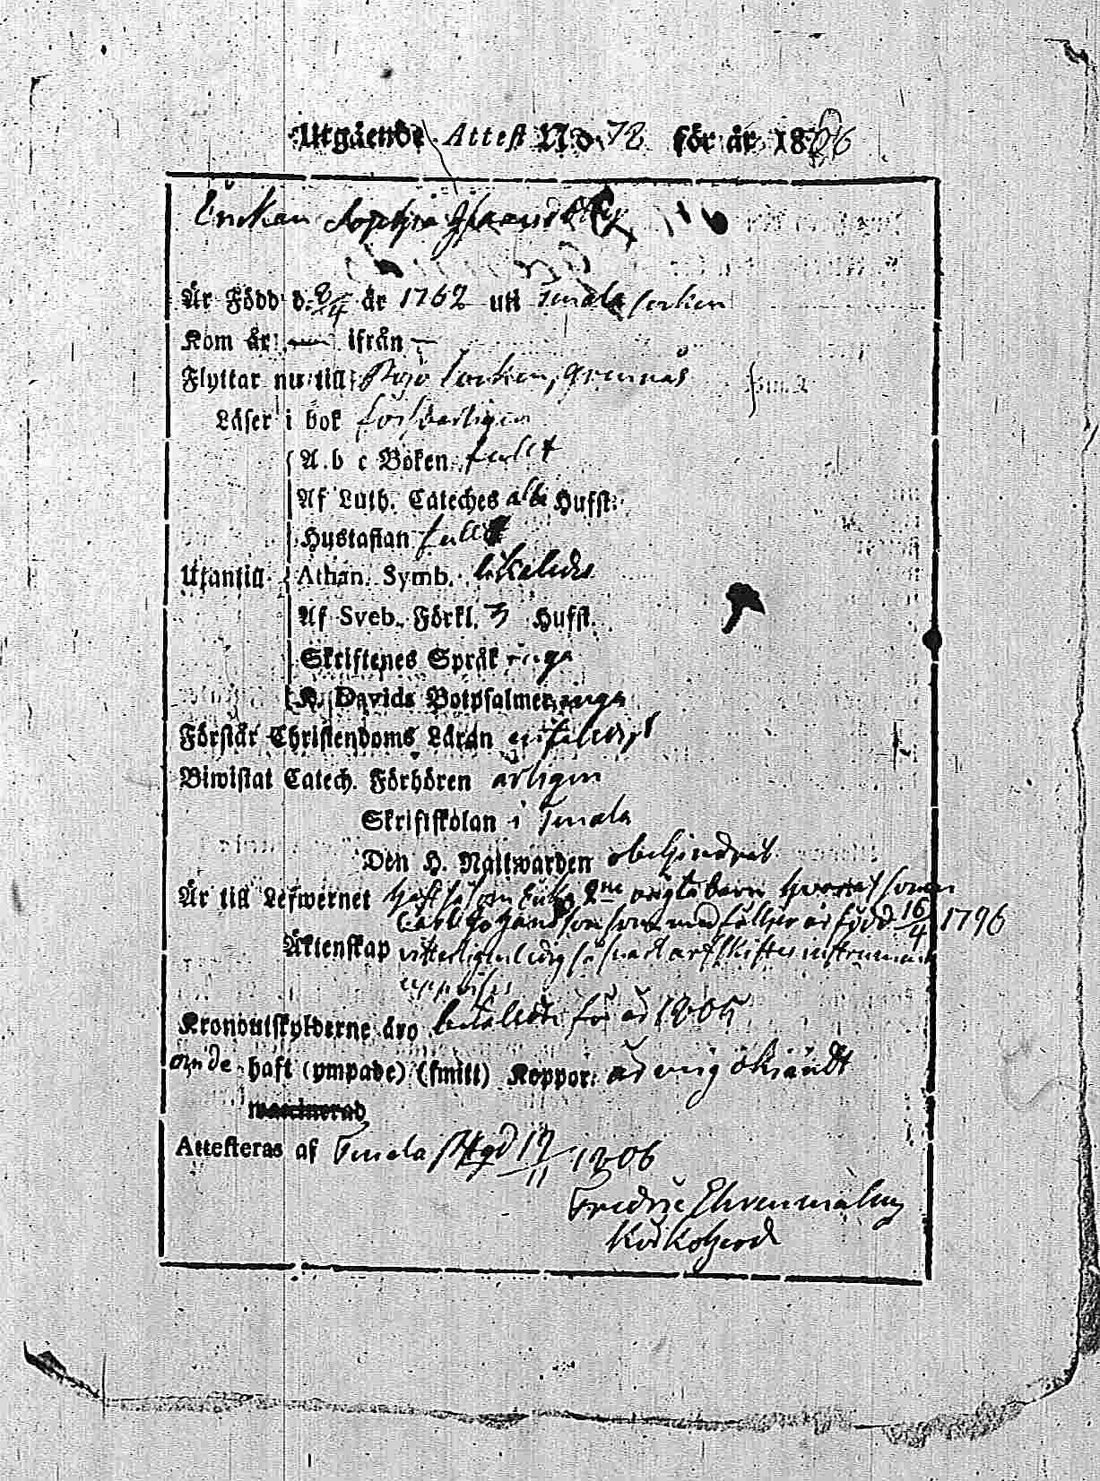 Utgående Attest N:o 72 för år 1806
Enckan Sophia
Är Född d. 8/4 år 1762 uti Tenala socken
Kom år — ifrån —
Flyttar nu till Pojo Socken,
Läser i bok försvarligen
A. b c Boken fullt
Af Luth. Cateches alla Hufst:
Hustaflan fullt
Utantill Athan. Symb. likaledes
Af Sveb. Förkl. 3 Hufst.
Skriftenes Språk inga
K. Davids Botpsalmer inga
Förstår Christendoms Läran enfaldigt
Biwistat Catech. Förhören årligen
Skriftskolan i Tenala
Den H. Nattwarden obehindrat
Är till Lefwernet haft såsom Enka 2ne oägta barn hvaraf sonen
Carl som med följer är född 16/4 1796
Äktenskap ledig arfskiftes instrument
uppvises
Kronoutskylderne äro betalde för år 1805
Om de haft (ympade) (smitt) Koppor: är mig okändt
waccinerad
Attesteras af Tenala 17/11 1806
Fredric Ehrenmalm
Kyrkoherde